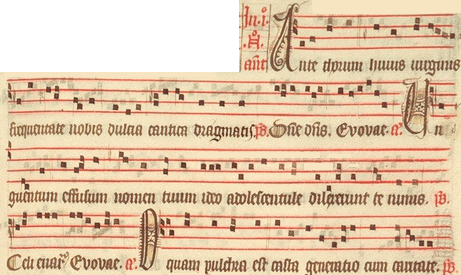 In .i.
N.
ant Ante thorum huius virginis
frequentate nobis dulcia cantica dragmatis. ps. Dñe dñs. Evovae. a. Un
guentum effusum nomen tuum ideo adolescentule dilexerunt te nimis. ps.
Celi enar Evovae. a. O quam pulchra est casta generatio cum caritate. ps.